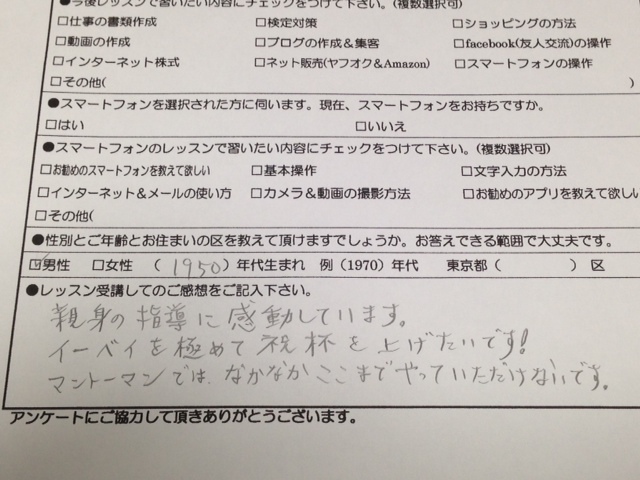 ●今後レッスンで習いたい内容にチェックをつけて下さい。(複数選択可)
□仕事の書類作成 □検定対策 □ショッピングの方法
□動画の作成 □ブログの作成＆集客 □facebook(友人交流)の操作
□インターネット株式 □ネット販売(ヤフオク＆Amazon) □スマートフォンの操作
□その他( )
●スマートフォンを選択された方に伺います。現在、スマートフォンをお持ちですか。
□はい □いいえ
●スマートフォンのレッスンで習いたい内容にチェックをつけて下さい。(複数選択可)
□お勧めのスマートフォンを教えて欲しい □基本操作 □文字入力の方法
□インターネット＆メールの使い方 □カメラ＆動画の撮影方法 □お勧めのアプリを教えて欲しい
□その他(
●性別とご年齢とお住まいの区を教えて頂けますでしょうか。お答えできる範囲で大丈夫です。
☑男性 □女性 （ 1950 ）年代生まれ 例（1970）年代 東京都（ ）区
●レッスン受講してのご感想をご記入下さい。
親身の指導に感動しています。
イーベイを極めて祝杯を上げたいです!
マントーマンでは、なかなかここまでやっていただけないです。
アンケートにご協力して頂きありがとうございます。